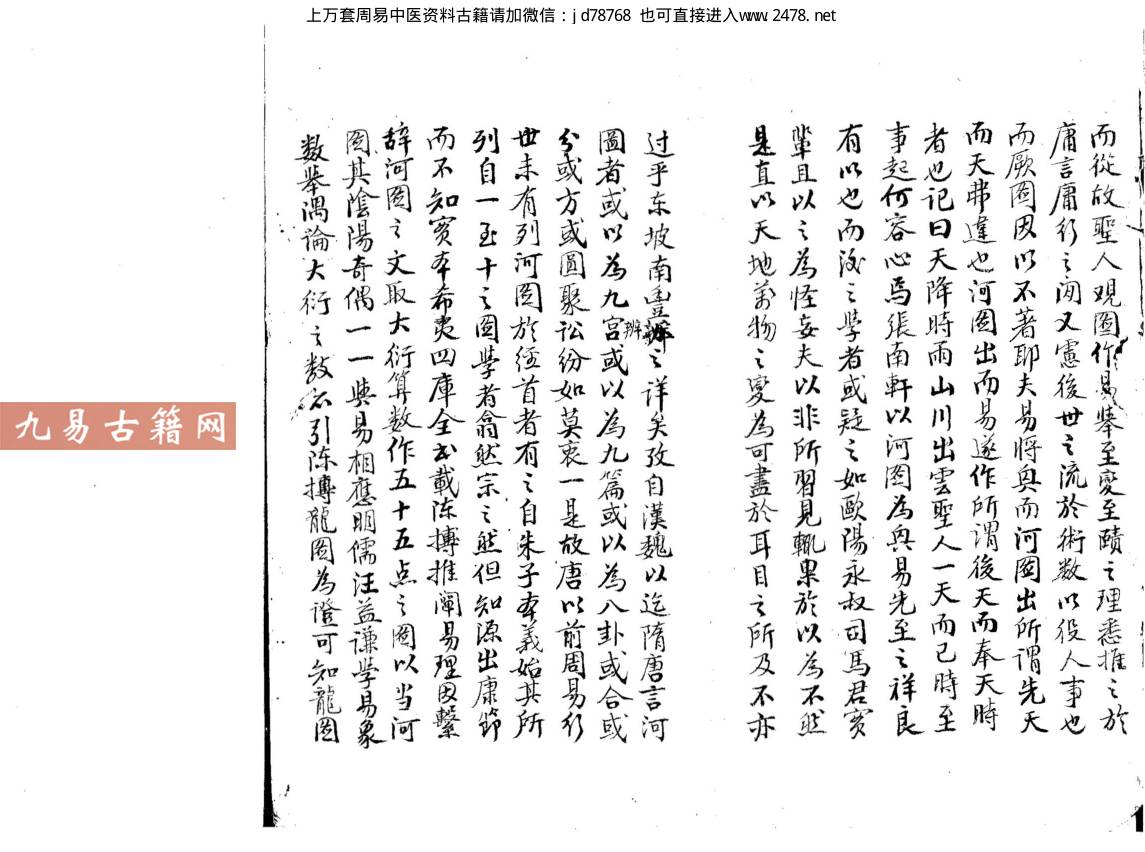 上万套周易中医资料古籍请加微信：jd78768 也可直接进入www.2478.net
而從故聖人观圖作易舉至變至賾之理悉推之於
庸言庸行之间又憲後世之流於術数以役人事也
而厥圖因以不著耶夫易將興而河圖出所謂先天
而天弗違也河圖出而易遂作所謂後天而奉天時
者也记曰天降時雨山川出雲聖人一天而已時至
事起何容心焉張南軒以河圖為興易先至之祥良
有以也而後之學者或疑之如歐陽永叔司馬君實
輩且以之為怪妄夫以非所習見輒畢於以為不然
是直以天地萬物之變為可盡於耳目之所及不亦
过乎东坡南豊辨之详矣孜自漢魏以迄隋唐言河
圖者或以為九宮或以為九篇或以為八卦或合或
分或方或圓聚讼纷如莫衷一是故唐以前周易行
世未有列河圖於经首者有之自朱子本義始其所
列自一至十之圖學者翕然宗之然但知源出康節
而不知實本希夷四庫全书載陈摶推阐易理因繫
辞河圖之文取大衍算数作五十五点之圖以当河
圖其陰陽奇偶一一與易相應明儒汪益谦學易象
数舉隅論大衍之数亦引陈摶龍圖為證可知龍圖
九易古籍网